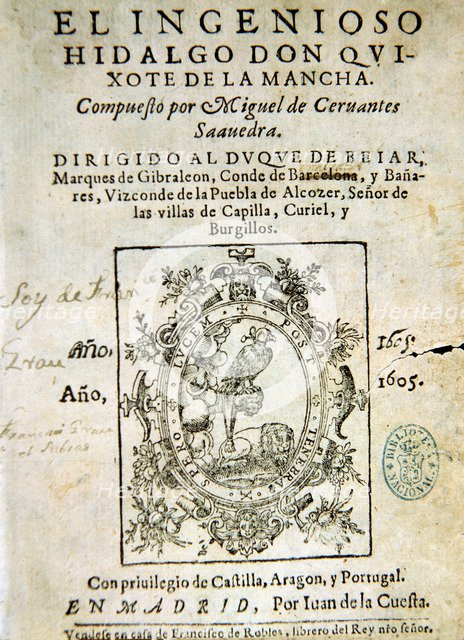 EL INGENIOSO
HIDALGO DON QVI-
XOTE DE LA MANCHA.
Compuesto por Miguel de Ceruantes
Saauedra.
DIRIGIDO AL DVQVE DE BEIAR,
Marques de Gibraleon, Conde de Barcelona, y Baña-
res, Vizconde de la Puebla de Alcozer, Señor de
las villas de Capilla, Curiel, y
Burgillos.
Soy de
Grau
Año, 1605.
Año, 1605.
SPERO LVCEM POST TENEBRAS
BIBLIOTECA NACIONAL
Con priuilegio de Castilla, Aragon, y Portugal.
EN MADRID, Por Iuan de la Cuesta.
Vendese en casa de Francisco de Robles, librero del Rey nro señor.